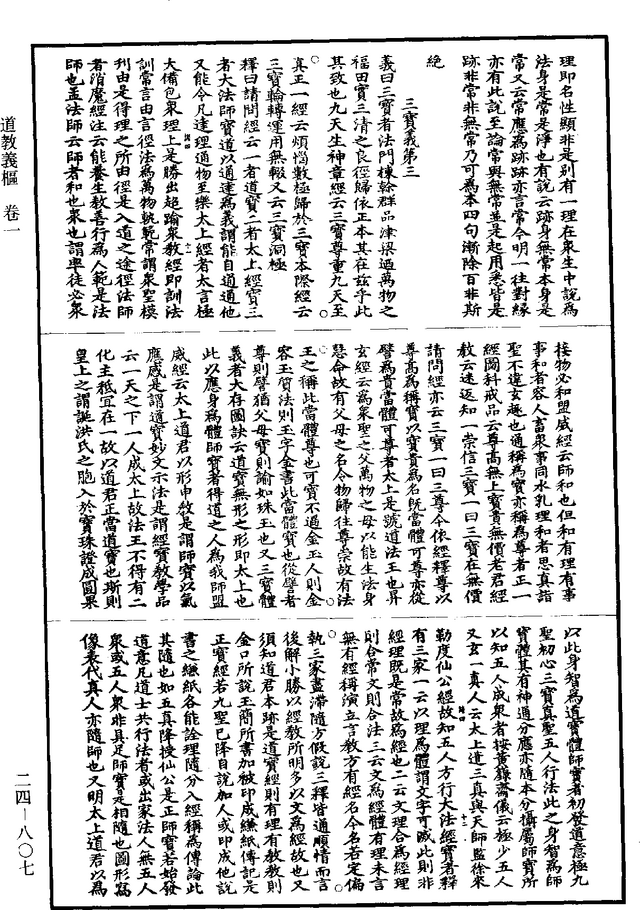 道教義樞　卷一
理即名性顯非是別有一理在衆生中說爲
法身是常是淨也有說云跡身無常本身是
常又云常應爲跡跡亦言常今明一往對緣
亦有此說至論常與無常並是起用悉皆是
跡非常非無常乃可爲本四句漸除百非斯
絶
三寶義第三
義曰三寶者法門棟幹群品津梁迺萬物之
福田實三清之良徑歸依正本其在茲乎此
其致也九天生神章經云三寶尊重九天至
真正一經云煩惱數極歸於三寶本際經云
三寶輪轉運用無輟又云三寶洞極
釋曰請問經云一者道寶二者太上經寶三
者大法師寶道以通達爲義謂能自通通他
又能令凡達理通物至樂太上經者太言極
大備包衆理上是勝出超踰衆教經即訓法
訓常言由言徑法爲萬物軌範常謂衆聖模
刋由是得理之所由徑是入道之途徑法師
者消魔經注云能養生教善行爲人範是法
師也孟法師云師者和也衆也謂率徒必衆
接物必和盟威經云師和也但和有理有事
事和者容人畜衆事同水乳理和者思真詣
聖不違玄趣也通稱爲寶亦稱爲尊者正一
經圖科戒品云尊高無上寶貴無價老君經
教云迷返知一崇信三寶一曰三寶在無價
請問經亦云三寶一曰三尊今依經釋尊以
尊高爲稱寶以寶貴爲名旣當體可尊亦從
譬爲貴當體可尊者太上是號道法王也昇
玄經云爲衆聖之父萬物之母以能生法身
慧命故有父母之名令物歸往尊崇故有法
王之稱此當體尊也可寶不過金玉人則金
容玉質法則玉字金書此當體寶也從譬者
尊則譬猶父母寶則論如珠玉也又三寶體
義者大存圖訣云道寶無形之形即太上也
此以應身爲體師寶者得道之人爲我師盟
威經云太上道君以形申教是謂師寶以氣
應感是謂道寶妙文示法是謂經寶教學品
云一天之下一人成太上故法王不得有二
化主秪宜在一故以道君正當道寶也斯則
皇上之謂誕洪氏之胞入於寶珠證成圓果
以此身智爲道寶體師寶者初發道意極九
聖初心三寶真聖五人行法此之身智爲師
寶體其有神通分應亦隨本分攝屬師寶所
以知五人成衆者按黄籙齋儀云極少五人
又玄一真人云太上遣三真與天師監徐來
勒度仙公經故知五人方行大法經寶者釋
有三家一云以理爲體謂文字可滅此則非
經理旣是常故爲經也二云文理合爲經理
則合常文則合法三云文爲經體有理未言
無有經稱演立言教方有經名今名若定偏
執三家盡滯隨方假說三釋皆通順情而言
後解小勝以經教所明多以文爲經故也又
須知道君本跡是道寶經則有理有教教則
金口所說玉簡所書加被印成縑紙傳記是
正寶經若九聖已降自說加人或印成他說
書之縑紙各能詮理隨分入經稱爲傳論此
其隨也如五真降授仙公是正師寶若始發
道意凡道士共行法者或出家法人無五人
衆或五人衆非具足師寶是相隨也圖形寫
像表代真人亦隨師也又明太上道君以爲
二四—八〇七